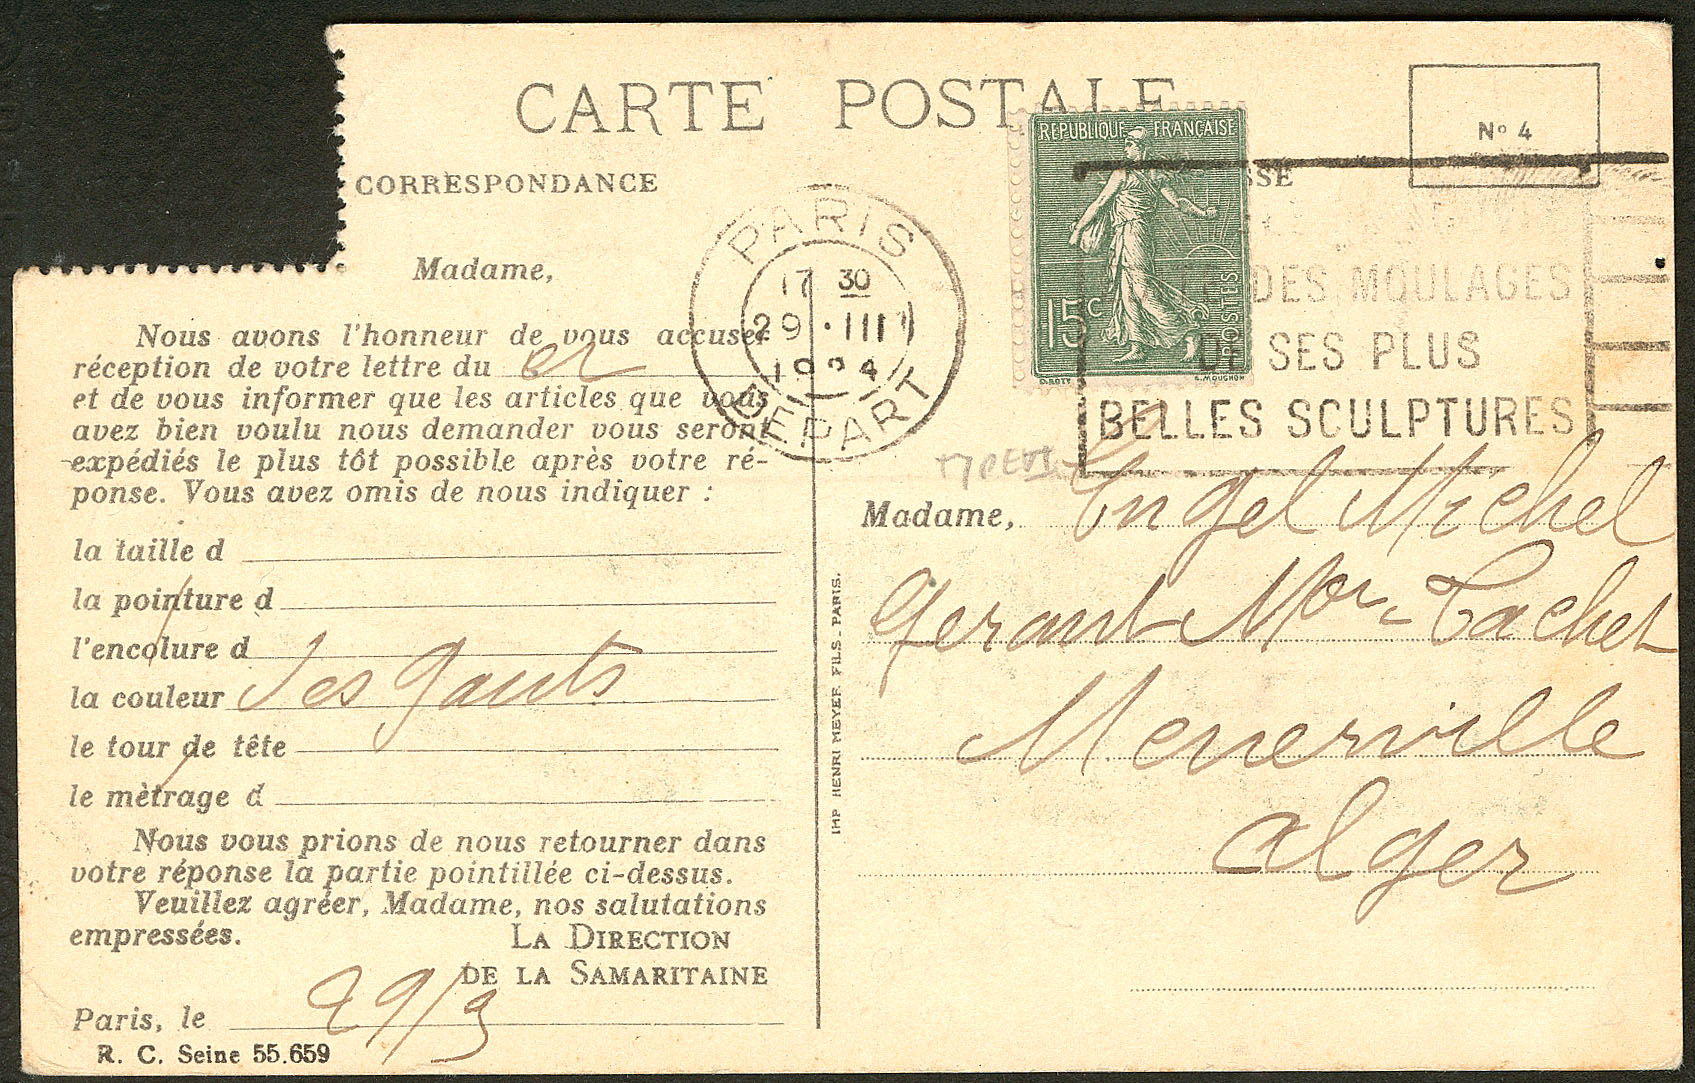 CARTE POSTALE
CORRESPONDANCE
Madame,
Nous avons l'honneur de vous accuser
réception de votre lettre du
et de vous informer que les articles que vous
avez bien voulu nous demander vous seront
expédiés le plus tôt possible après votre ré-
ponse. Vous avez omis de nous indiquer :
la taille d
la pointure d
l'encolure d
la couleur des gants
le tour de tête
le métrage d
Nous vous prions de nous retourner dans
votre réponse la partie pointillée ci-dessus.
Veuillez agréer, Madame, nos salutations
empressées.
LA DIRECTION
DE LA SAMARITAINE
Paris, le 29/3
R. C. Seine 55.659
IMP HENRI MEYER FILS. PARIS.
PARIS
17 30
29 · III
1924
DEPART
REPUBLIQUE FRANÇAISE
15c
POSTES
O.ROTY
E.MOUCHON
SSE
No 4
DES MOULAGES
DE SES PLUS
BELLES SCULPTURES
Madame, Engel Michel
Gerant Mon Cachet
Menerville
Alger